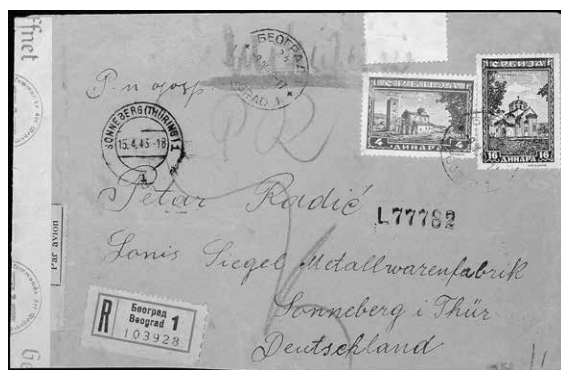 ffnet
БЕОГРАД
BEOGRAD 1
P. n. gosp.
SONNEBERG (THÜRING) 1
15.4.43-18
СРБИЈА
4 ДИНАРА 4
СРБИЈА
10 ДИНАРА 10
Petar Radić
L77782
Lonis Siegel Metallwarenfabrik
Sonneberg i Thür
Deutschland
Par avion
R
Београд
Beograd 1
103928
Ge